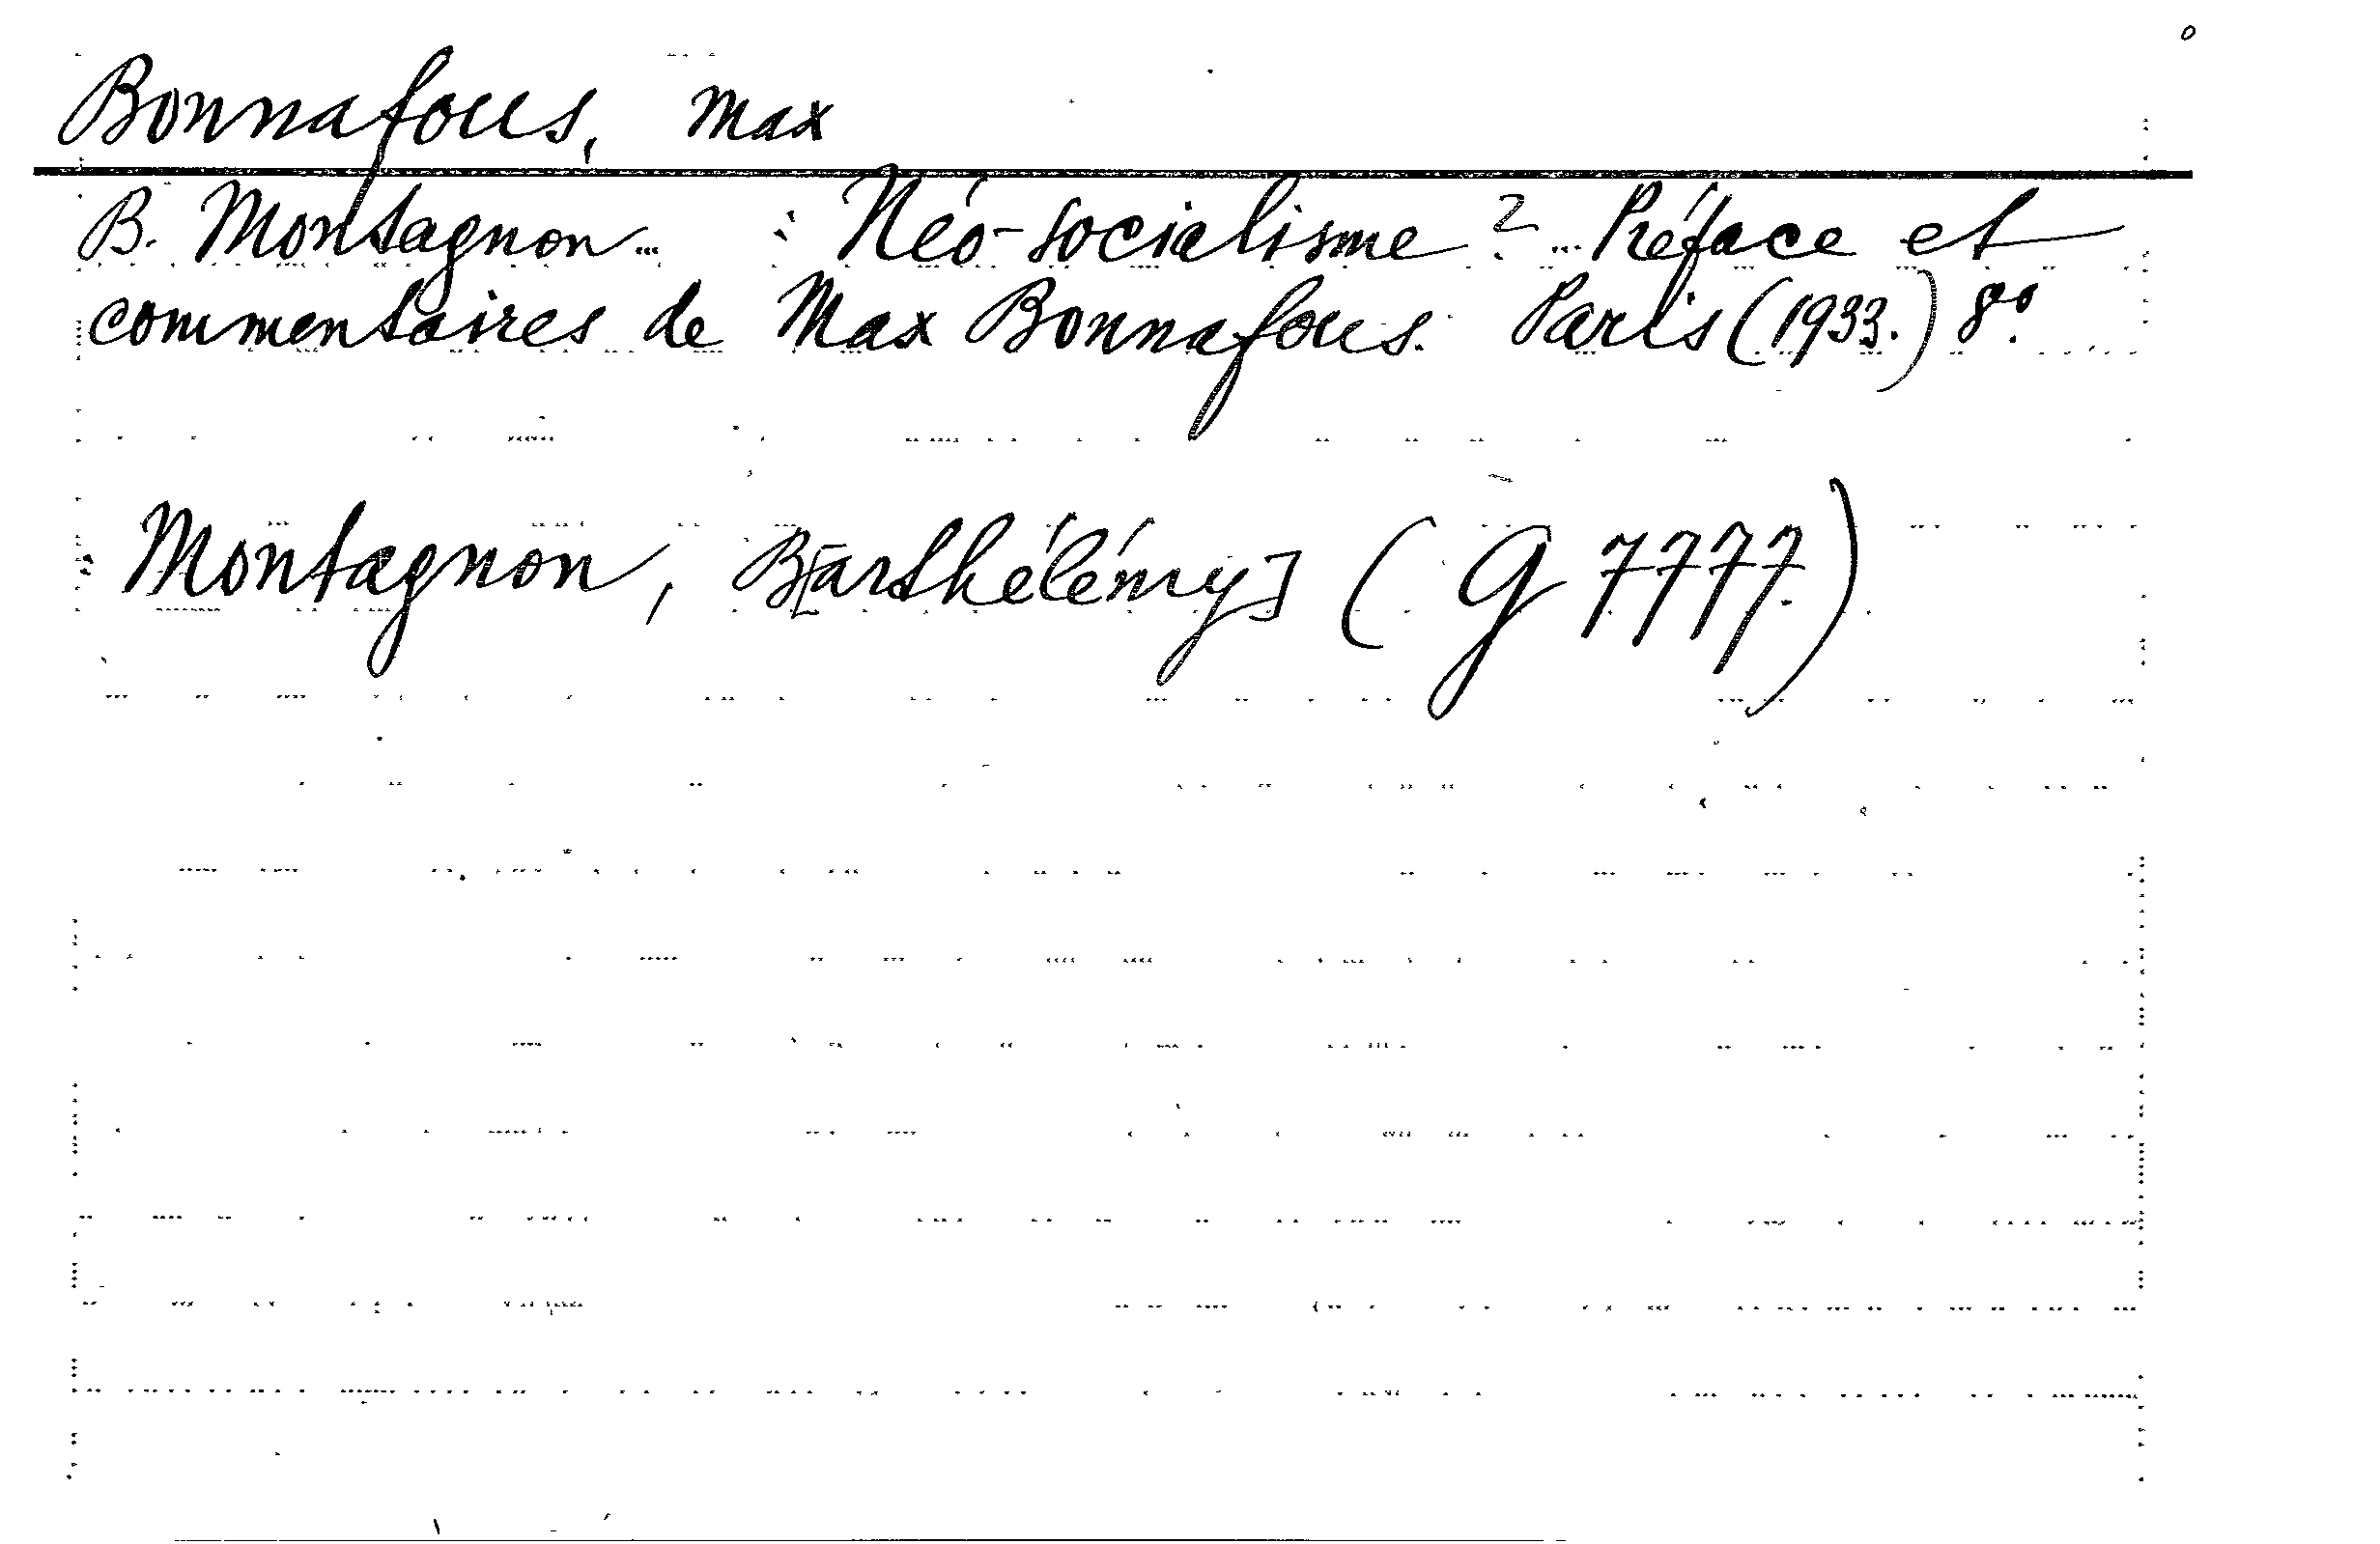 Bonnafous, Max
B. Montagnon... : Néo-socialisme? ... Préface et
commentaires de Max Bonnafous. Paris (1933.) 8°.
Montagnon, B[arthélémy] (G 7777.)